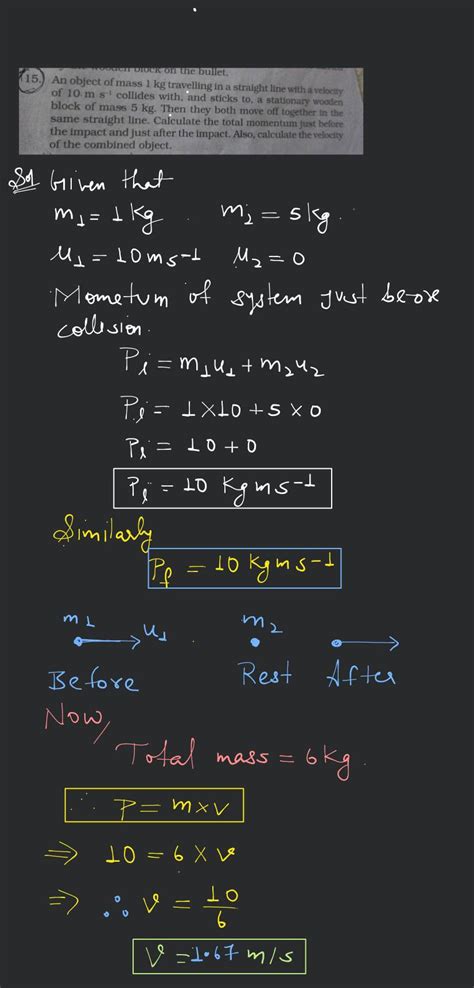 wooden block on the bullet.
15. An object of mass 1 kg travelling in a straight line with a velocity
of 10 m s⁻¹ collides with, and sticks to, a stationary wooden
block of mass 5 kg. Then they both move off together in the
same straight line. Calculate the total momentum just before
the impact and just after the impact. Also, calculate the velocity
of the combined object.
Sol Given that
m₁ = 1 kg m₂ = 5 kg.
u₁ = 10 ms-1 u₂ = 0
Mometum of system just before
collision.
Pi = m₁u₁ + m₂u₂
Pi = 1 × 10 + 5 × 0
Pi = 10 + 0
Pi = 10 Kg ms-1
Similarly
Pf = 10 kg ms-1
m₁ u₁ m₂
Before Rest After
Now,
Total mass = 6 kg.
∵ P = m×v
⇒ 10 = 6 × v
⇒ ∴ v = 10/6
V = 1.67 m/s